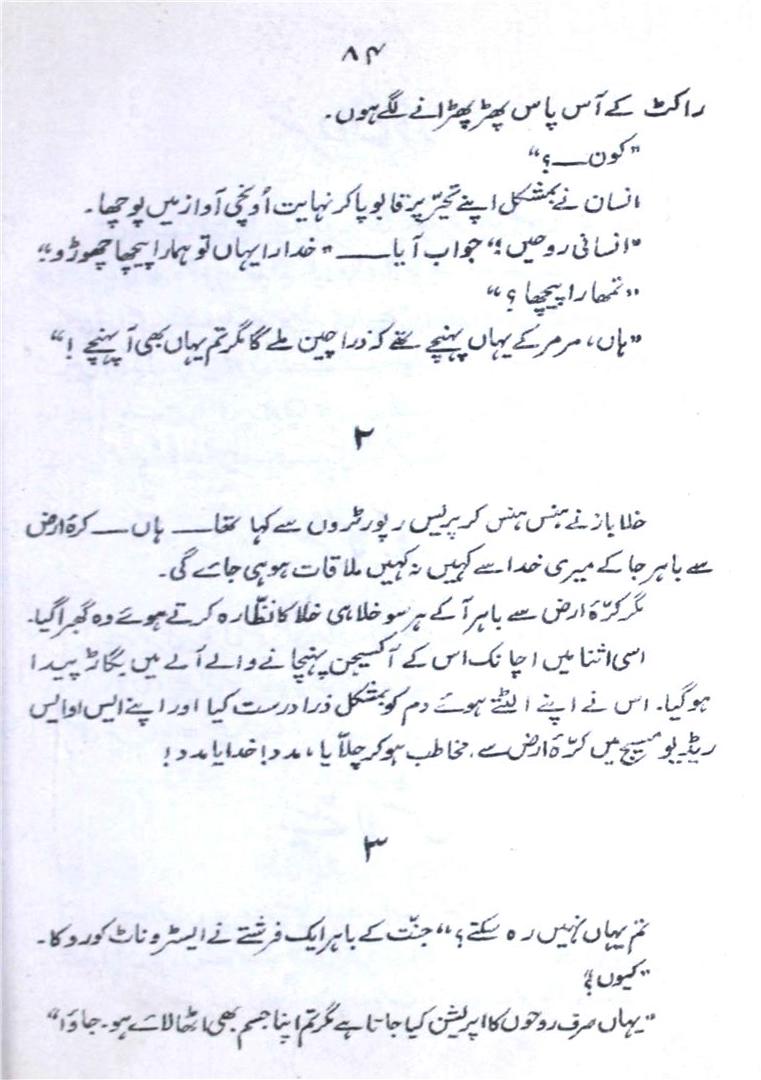 ۸۴
راکٹ کے آس پاس پھڑپھڑانے لگے ہوں۔
”کون——؟“
انسان نے بمشکل اپنے تحیّر پر قابو پا کر نہایت اُونچی آواز میں پوچھا۔
”انسانی روحیں؟“ جواب آیا—— ”خدارا یہاں تو ہمارا پیچھا چھوڑو۔“
”تمھارا پیچھا؟“
”ہاں، مر مر کے یہاں پہنچے تھے کہ ذرا چین ملے گا مگر تم یہاں بھی آ پہنچے!“
۲
خلا باز نے ہنس ہنس کر پریس رپورٹروں سے کہا تھا—— ہاں—— کرۂ ارض
سے باہر جا کے میری خدا سے کہیں نہ کہیں ملاقات ہو ہی جائے گی۔
مگر کرّۂ ارض سے باہر آ کے ہر سو خلا ہی خلا کا نظّارہ کرتے ہوئے وہ گھبرا گیا۔
اسی اثنا میں اچانک اس کے آکسیجن پہنچانے والے آلے میں بگاڑ پیدا
ہو گیا۔ اس نے اپنے الٹتے ہوئے دم کو بمشکل ذرا درست کیا اور اپنے ایس او ایس
ریڈیو مسیج میں کرّۂ ارض سے مخاطب ہو کر چلّایا، مدد! خدایا مدد!
۳
تم یہاں نہیں رہ سکتے؟“ جنّت کے باہر ایک فرشتے نے ایسٹروناٹ کو روکا۔
”کیوں؟“
”یہاں صرف روحوں کا اپریشن کیا جاتا ہے مگر تم اپنا جسم بھی اٹھا لائے ہو۔ جاؤ!“